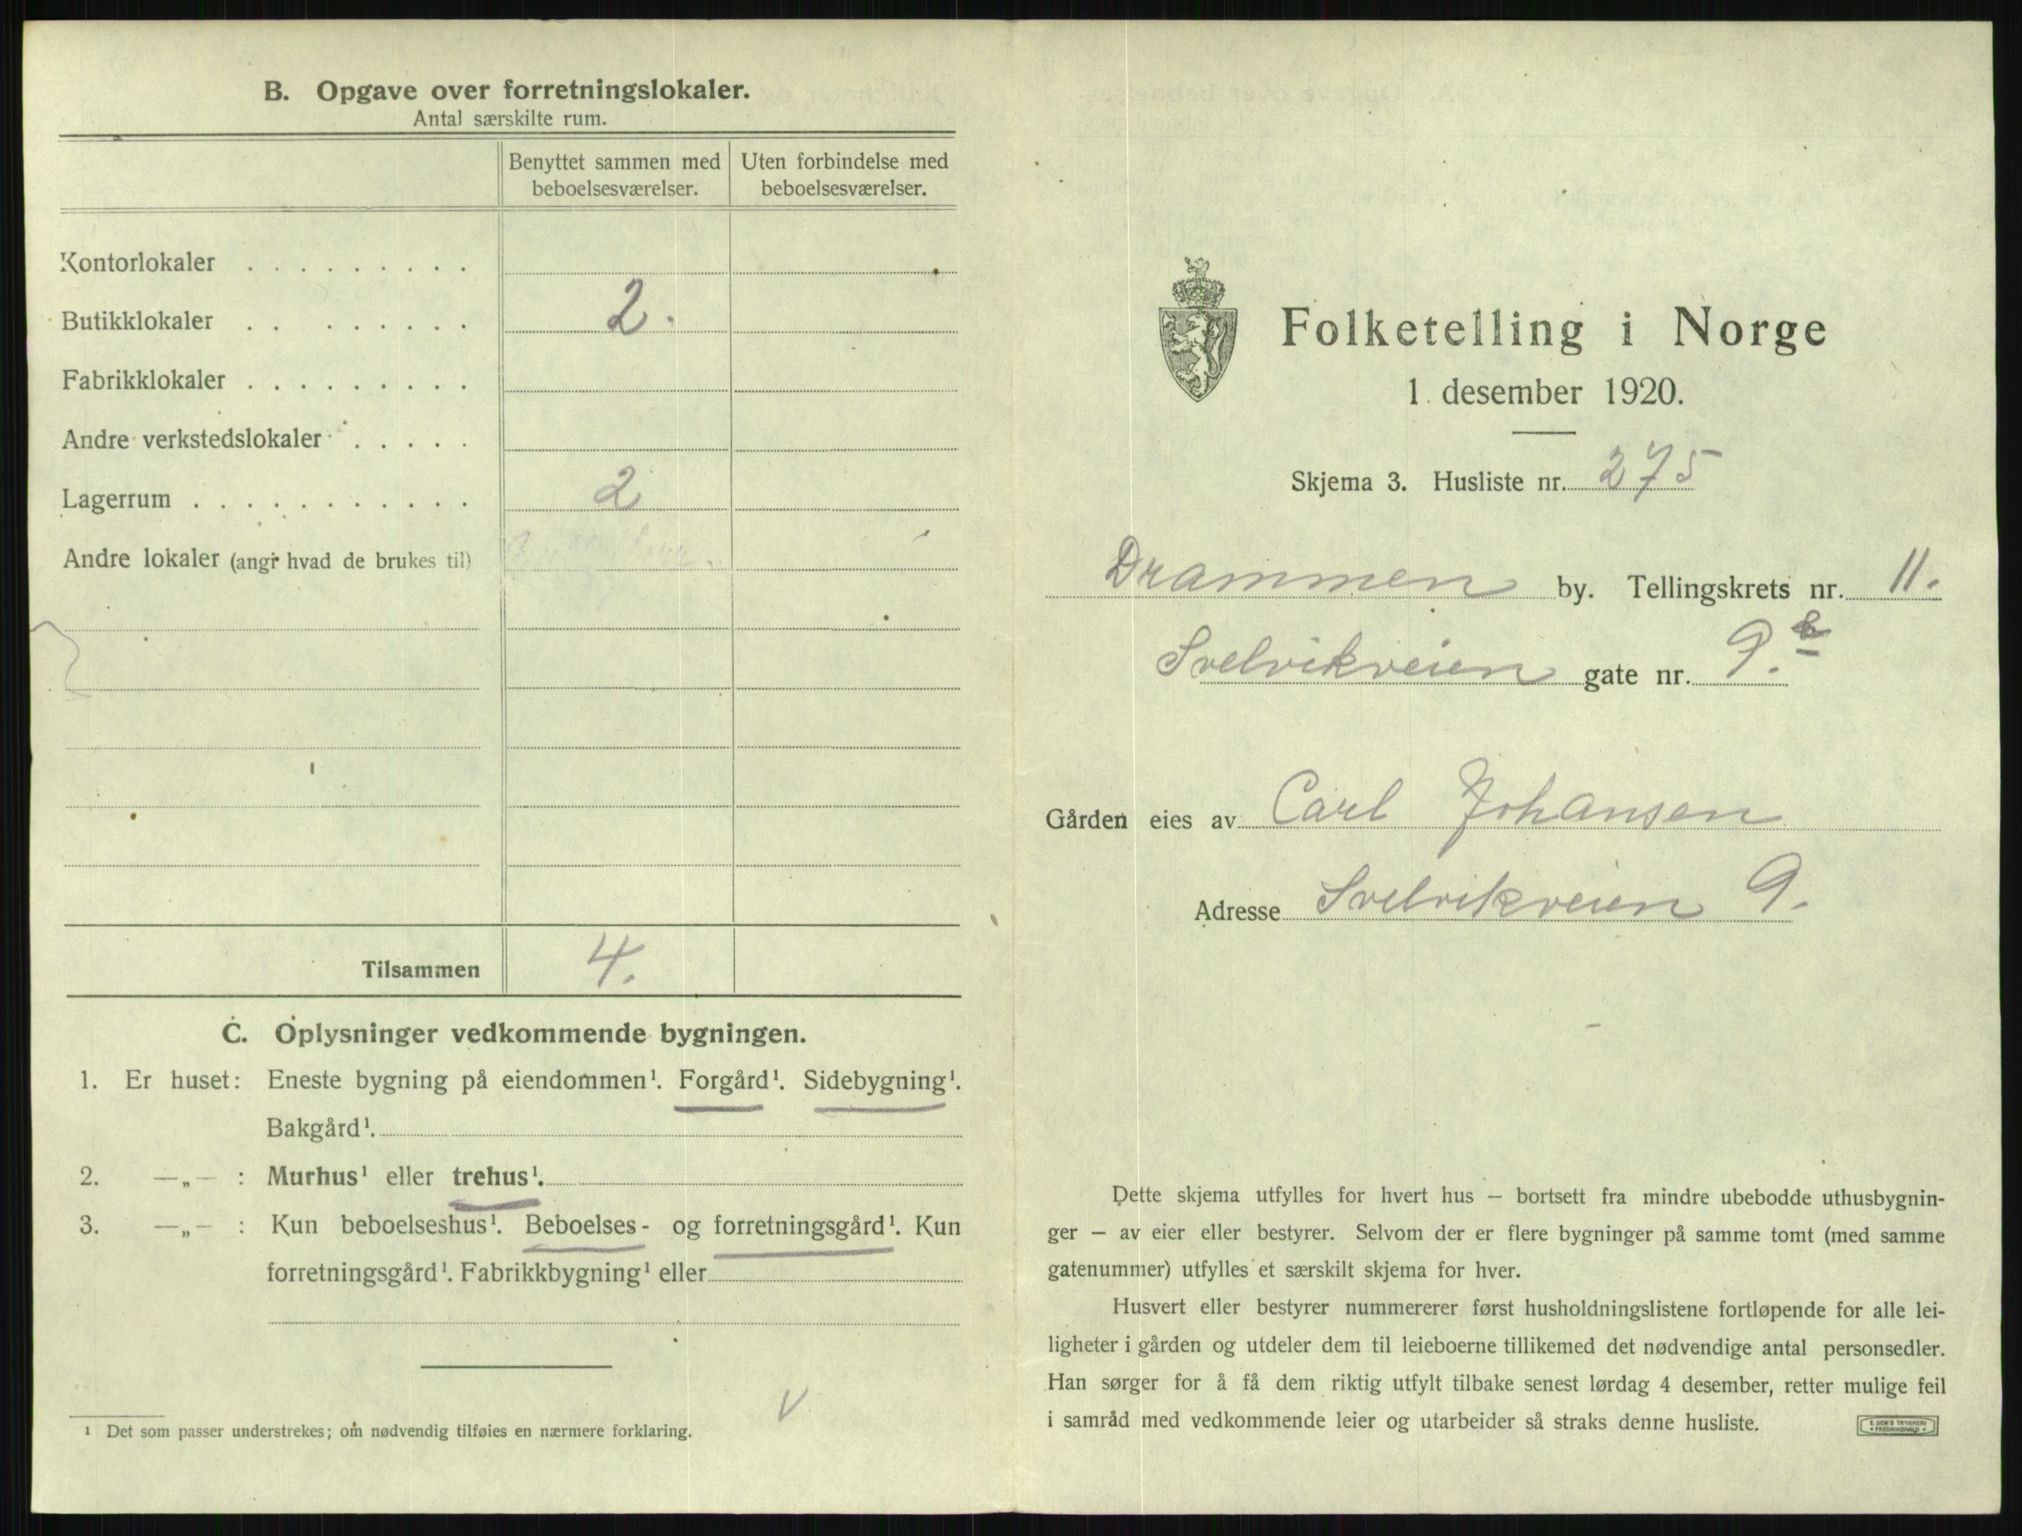 B. Opgave over forretningslokaler.
Antal særskilte rum.
Benyttet sammen med beboelsesværelser.
Uten forbindelse med beboelsesværelser.
Kontorlokaler . . . . . . . . .
Butikklokaler . . . . . . . . 2.
Fabrikklokaler . . . . . . . . .
Andre verkstedslokaler . . . . .
Lagerrum . . . . . . . . . . . 2
Andre lokaler (angi hvad de brukes til)
Tilsammen 4.
C. Oplysninger vedkommende bygningen.
1. Er huset: Eneste bygning på eiendommen¹. Forgård¹. Sidebygning¹.
Bakgård¹.
2. —„— : Murhus¹ eller trehus¹.
3. —„— : Kun beboelseshus¹. Beboelses- og forretningsgård¹. Kun
forretningsgård¹. Fabrikkbygning¹ eller
¹ Det som passer understrekes; om nødvendig tilføies en nærmere forklaring.
Folketelling i Norge
1. desember 1920.
Skjema 3. Husliste nr. 275
Drammen by. Tellingskrets nr. 11.
Svelvikveien gate nr. 9.b
Gården eies av Carl Johansen
Adresse Svelvikveien 9.
Dette skjema utfylles for hvert hus — bortsett fra mindre ubebodde uthusbygnin-
ger — av eier eller bestyrer. Selvom der er flere bygninger på samme tomt (med samme
gatenummer) utfylles et særskilt skjema for hver.
Husvert eller bestyrer nummererer først husholdningslistene fortløpende for alle lei-
ligheter i gården og utdeler dem til leieboerne tillikemed det nødvendige antal personsedler.
Han sørger for å få dem riktig utfylt tilbake senest lørdag 4 desember, retter mulige feil
i samråd med vedkommende leier og utarbeider så straks denne husliste.